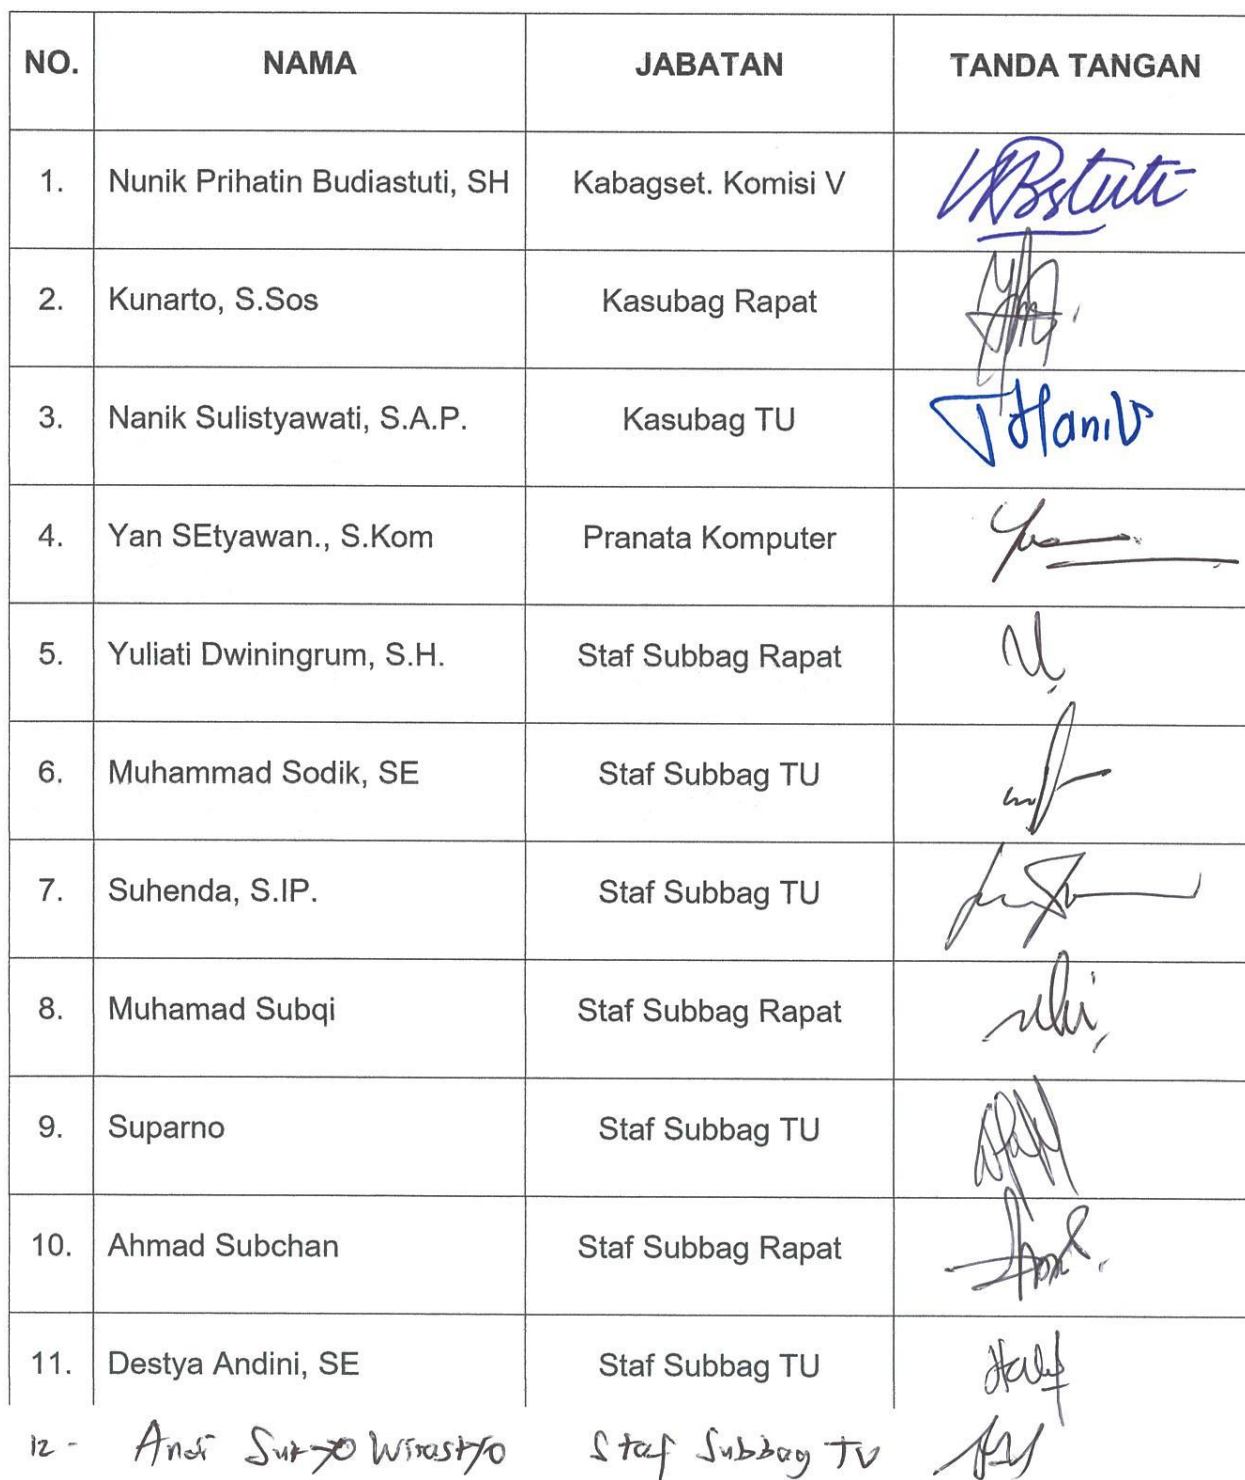 NO. NAMA JABATAN TANDA TANGAN
1. Nunik Prihatin Budiastuti, SH Kabagset. Komisi V
2. Kunarto, S.Sos Kasubag Rapat
3. Nanik Sulistyawati, S.A.P. Kasubag TU
4. Yan SEtyawan., S.Kom Pranata Komputer
5. Yuliati Dwiningrum, S.H. Staf Subbag Rapat
6. Muhammad Sodik, SE Staf Subbag TU
7. Suhenda, S.IP. Staf Subbag TU
8. Muhamad Subqi Staf Subbag Rapat
9. Suparno Staf Subbag TU
10. Ahmad Subchan Staf Subbag Rapat
11. Destya Andini, SE Staf Subbag TU
12 - Andi Staf Subbag TU